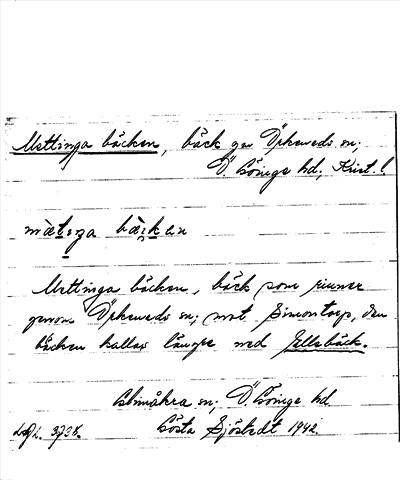 Mettinga bäcken, bäck gm Örkeneds sn;
Ö. Göinge hd, Krist. l.
mætiŋa bækan
Mettinga bäcken, bäck som rinner
genom Örkeneds sn; mot Simontorp, den
bäcken kallas längre ned Ellebäck.
Glimåkra sn; Ö. Göinge hd
Gösta Sjöstedt 1942.